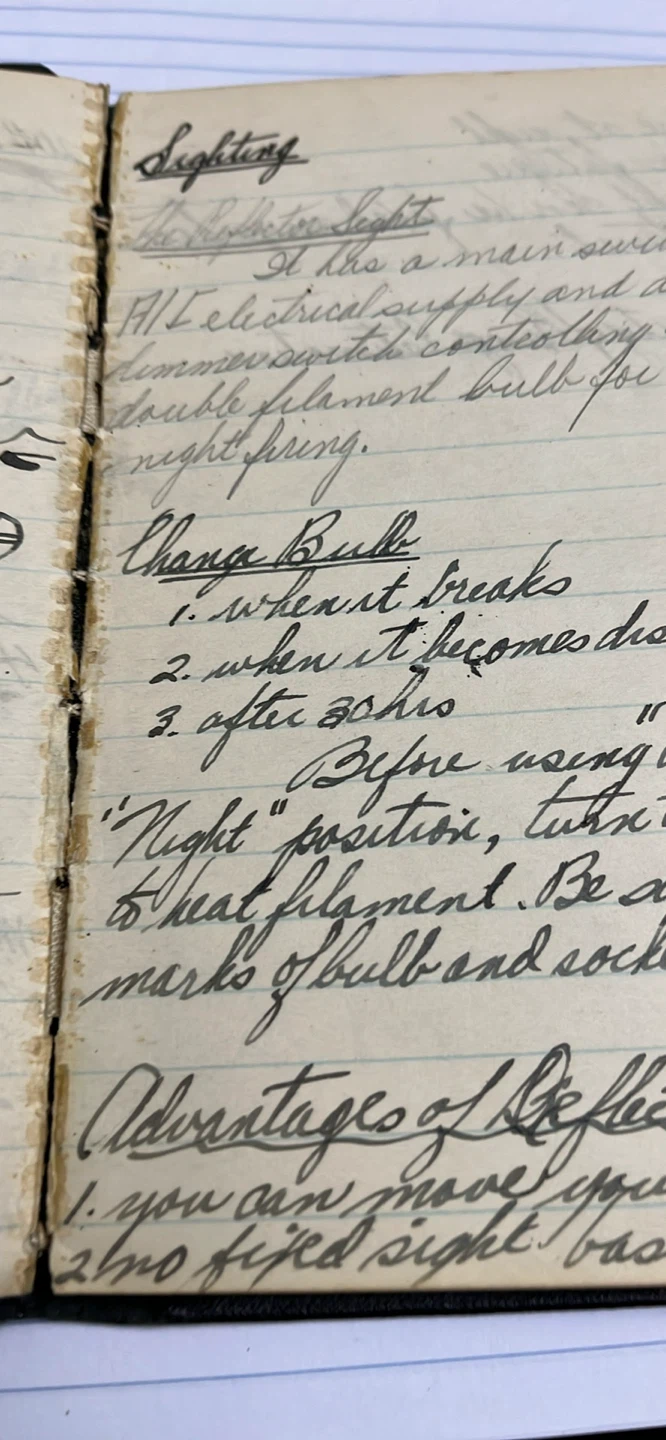 Sighting
The Reflector Sight
It has a main swi
electrical supply and a
dimmer switch controlling
double filament bulb for
night firing.
Change Bulb
1. when it breaks
2. when it becomes dis
3. after 30 hrs
Before using "
"Night" position, turn
to heat filament. Be s
marks of bulb and socke
Advantages of Reflec
1. you can move you
2 no fixed sight bas